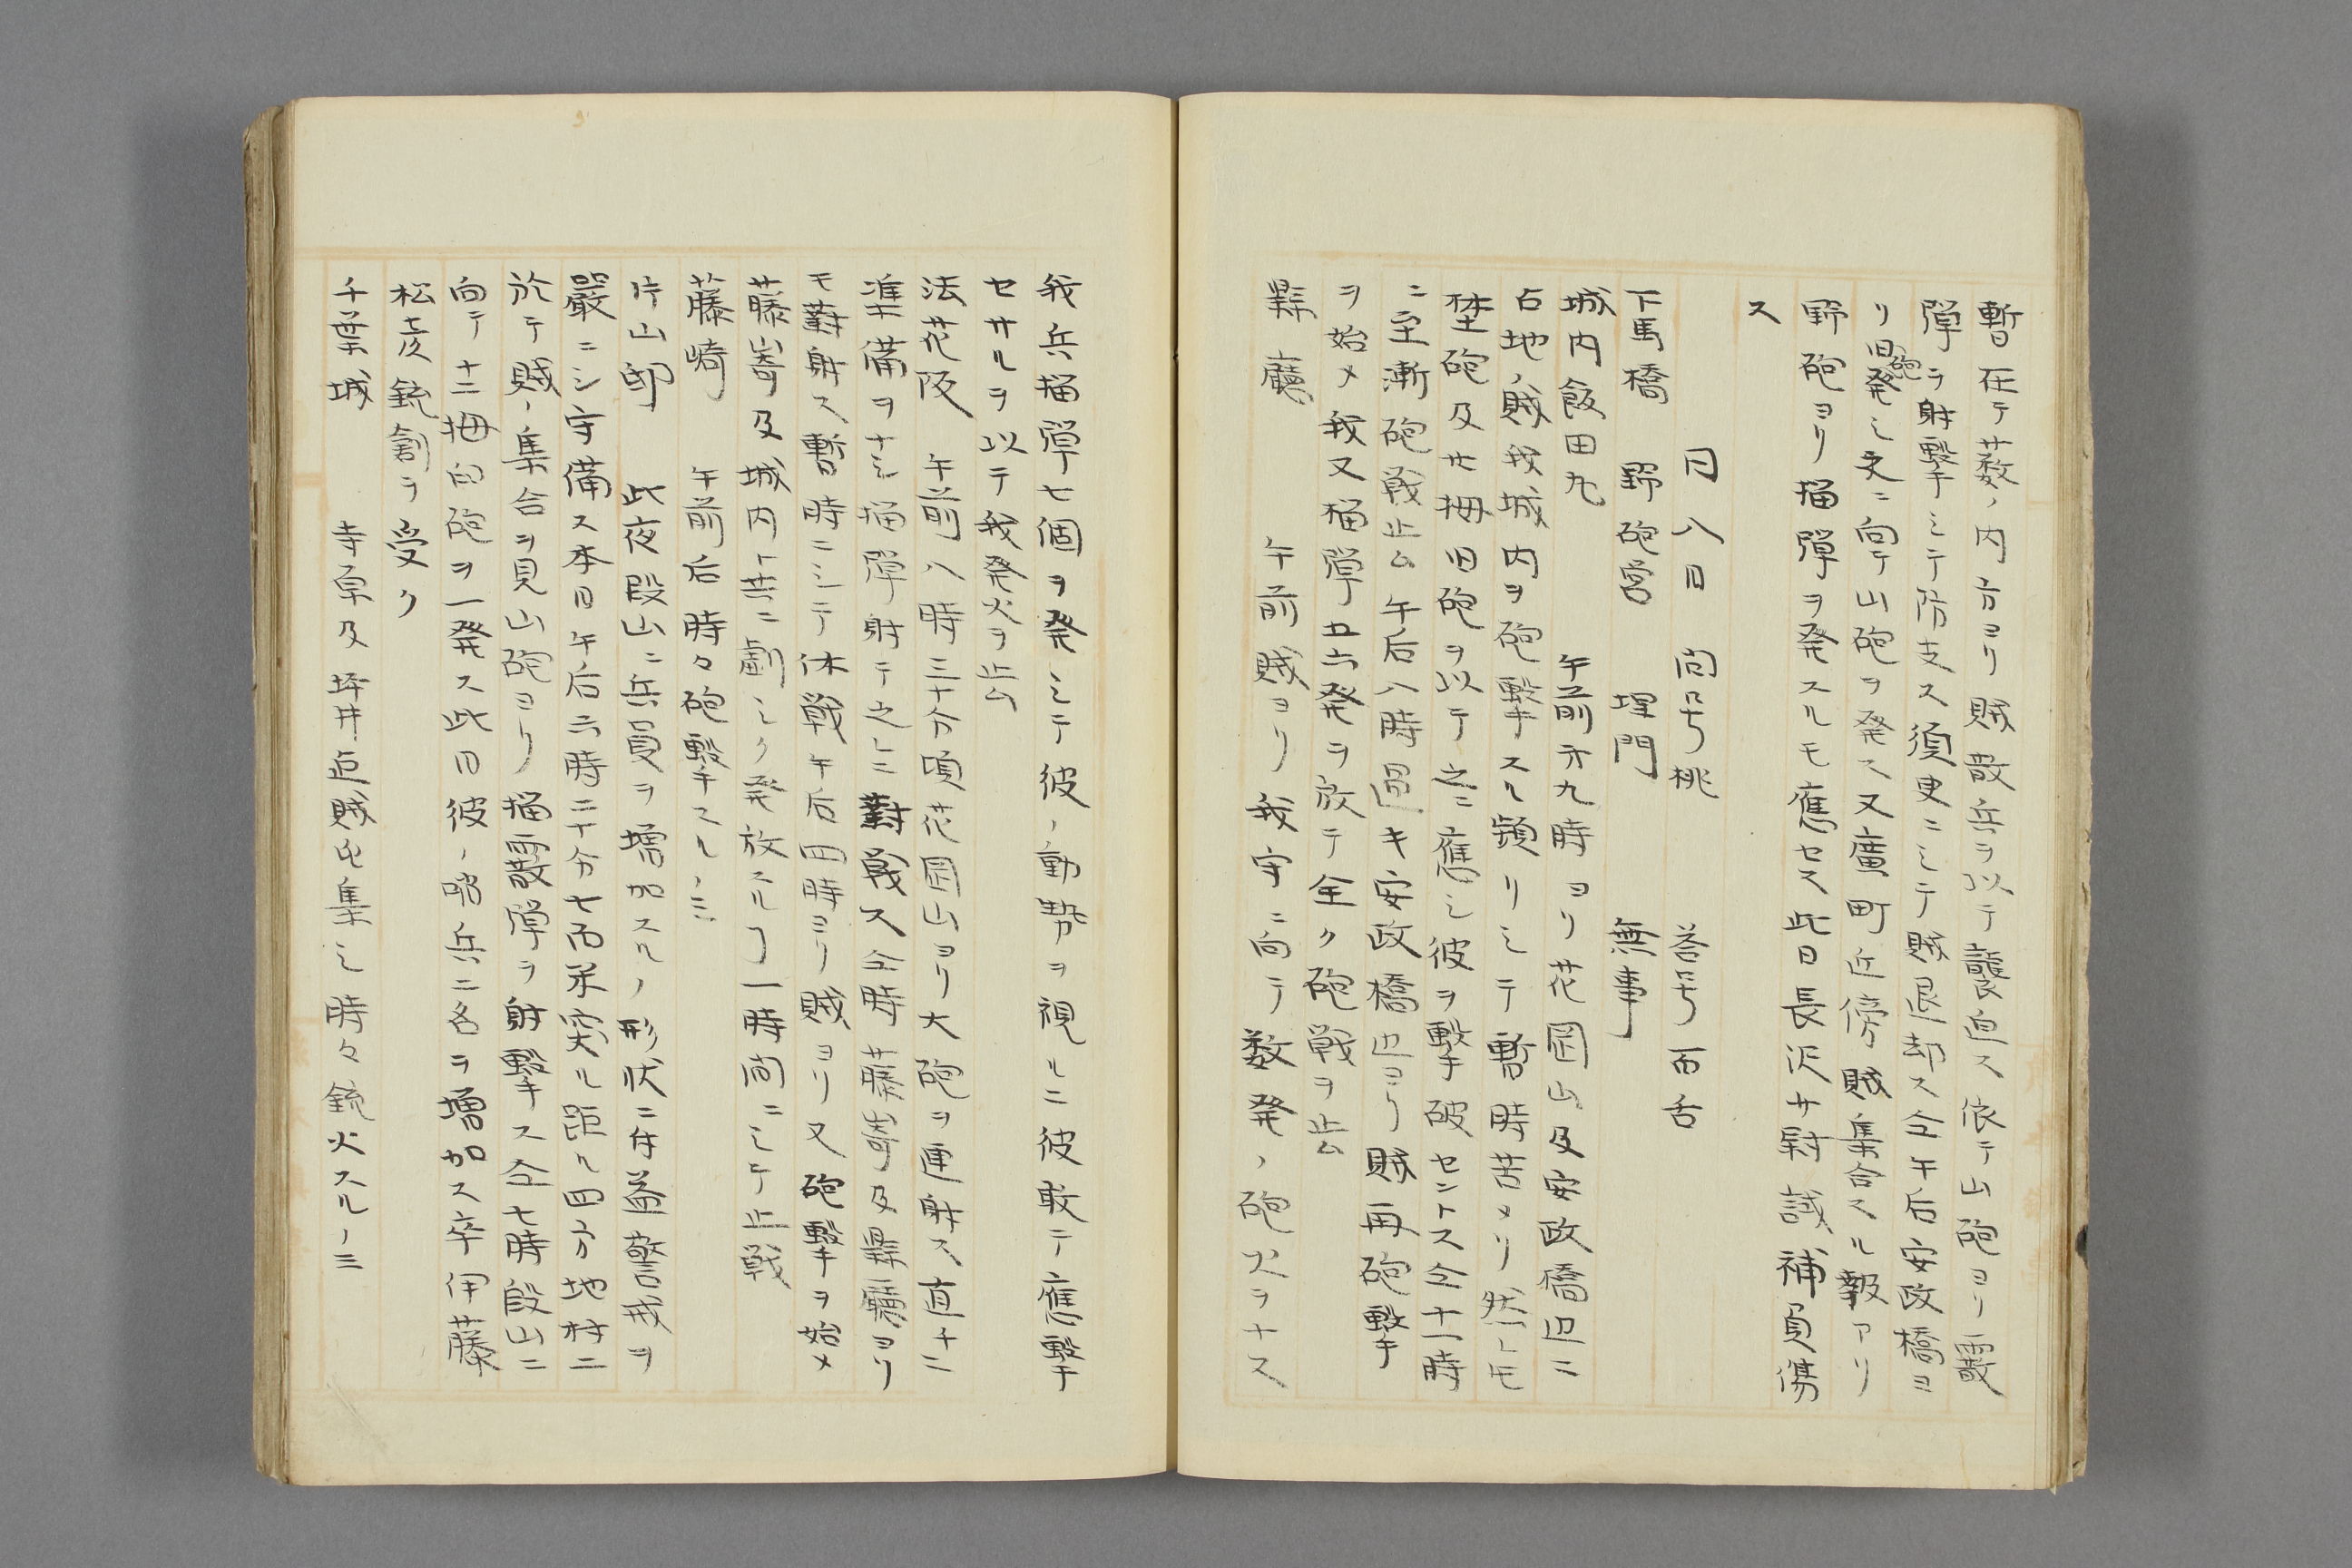 暫在テ藪ノ内方ヨリ賊散兵ヲ以テ襲迫ス依テ山砲ヨリ霰
弾ヲ射撃シテ防支ス須臾ニシテ賊退却ス仝午后安政橋ヨ
リ旧砲発シ之ニ向テ山砲ヲ発ス又廣町近傍賊集合スル報アリ
野砲ヨリ榴弾ヲ発スルモ應セス此日長沢少尉試補負傷
ス
同八日 問号桃 答号西舌
下馬橋 野砲営 埋門 無事
城内飯田丸 午前第九時ヨリ花岡山及安政橋辺ニ
占地ノ賊我城内ヲ砲撃スル頻リニシテ暫時苦メリ然トモ
埜砲及廿拇臼砲ヲ以テ之ニ應シ彼ヲ撃破セントス仝十一時
ニ至漸砲戦止ム午后八時過キ安政橋辺ヨリ賊再砲撃
ヲ始メ我又榴弾五六発ヲ放テ全ク砲戦ヲ止ム
縣廳 午前賊ヨリ我守ニ向テ数発ノ砲火ヲナス
我兵榴弾七個ヲ発シテ彼ノ動勢ヲ視ルニ彼敢テ應撃
セサルヲ以テ我発火ヲ止ム
法花阪 午前八時三十分頃花岡山ヨリ大砲ヲ連射ス直チニ
準備ヲナシ榴弾射テ之レニ對戦ス仝時藤嵜及縣廳ヨリ
モ對射ス暫時ニシテ休戦午后四時ヨリ賊ヨリ又砲撃ヲ始メ
藤嵜及城内ト共ニ劇シク発放スルヿ一時間ニシテ止戦
藤崎 午前后時々砲撃スルノミ
片山邸 此夜段山ニ兵員ヲ増加スルノ形状ニ付益警戒ヲ
嚴ニシ守備ス本日午后六時二十分七百米突ル距ル四方地村ニ
於テ賊ノ集合ヲ見山砲ヨリ榴霰弾ヲ射撃ス仝七時段山ニ
向テ十二拇臼砲ヲ一発ス此日彼ノ哨兵二名ヲ増加ス卒伊藤
松彦銃創ヲ受ク
千葉城 寺原及坪井辺賊屯集シ時々銃火スルノミ